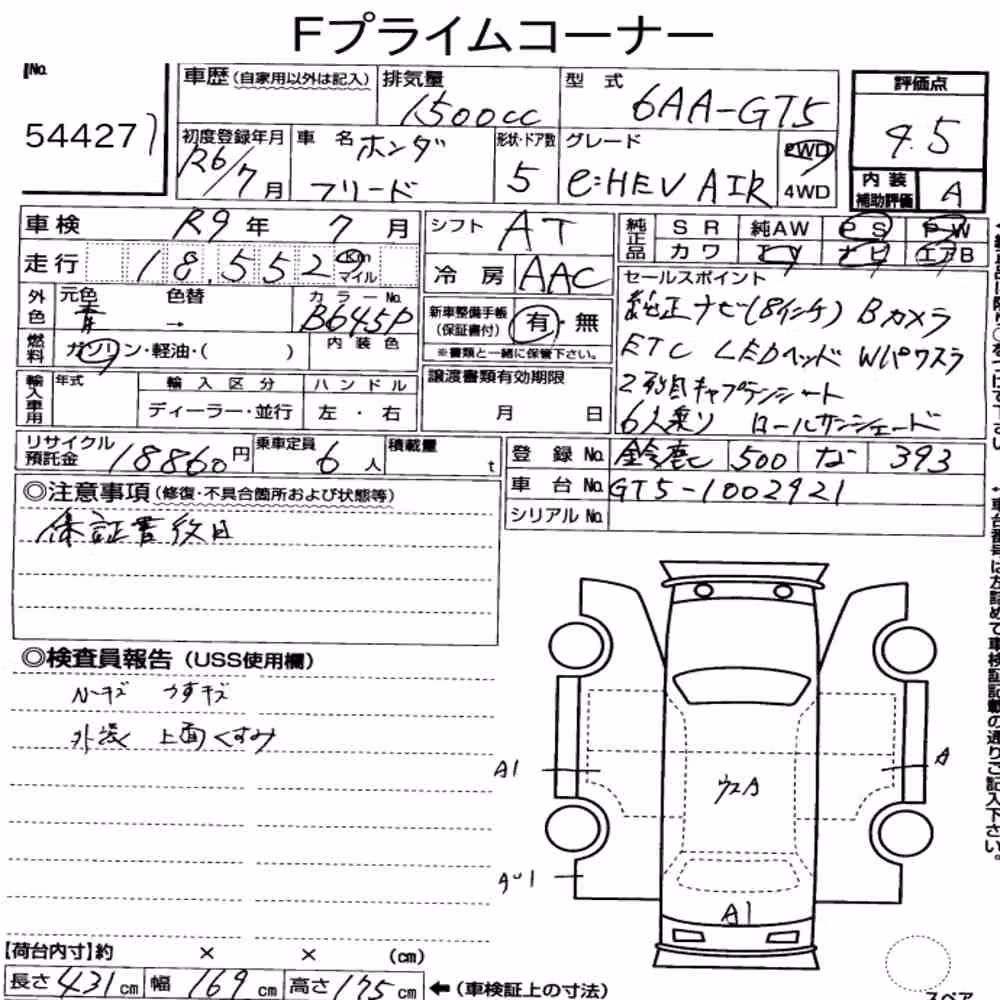 Fプライムコーナー
No.
54427
車歴(自家用以外は記入)
排気量
1500cc
型 式
6AA-GT5
評価点
4.5
初度登録年月
R6/7月
車 名
ホンダ
フリード
形状・ドア数
5
グレード
e:HEV AIR
2WD
4WD
内 装
補助評価
A
車検 R9年 7月
シフト AT
純正品
SR 純AW PS PW
カワ TV ナビ エアB
走行 18,552 km
マイル
冷 房 AAC
セールスポイント
純正ナビ(8インチ) Bカメラ
ETC LEDヘッド Wパワスラ
2列目キャプテンシート
6人乗り ロールサンシェード
外色
元色 色替 カラーNo.
青 → B645P
新車整備手帳
(保証書付)
有・無
※書類と一緒に保管下さい。
燃料
ガソリン・軽油・( )
内装色
譲渡書類有効期限
月 日
輸入車用
年式
輸入区分
ハンドル
ディーラー・並行
左・右
リサイクル
預託金
18860円
乗車定員
6人
積載量
t
登 録 No. 鈴鹿 500 な 393
車 台 No. GT5-1002921
シリアル No.
◎注意事項(修復・不具合箇所および状態等)
◎検査員報告(USS使用欄)
N-キズ うすキズ
外装 上面くすみ
A1
A
A1
【荷台内寸】約 × × (cm)
長さ431cm 幅169cm 高さ175cm ←(車検証上の寸法)
スペア